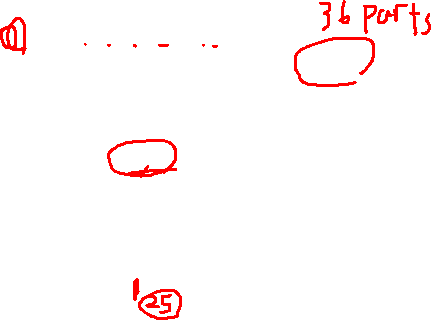 36 parts
25